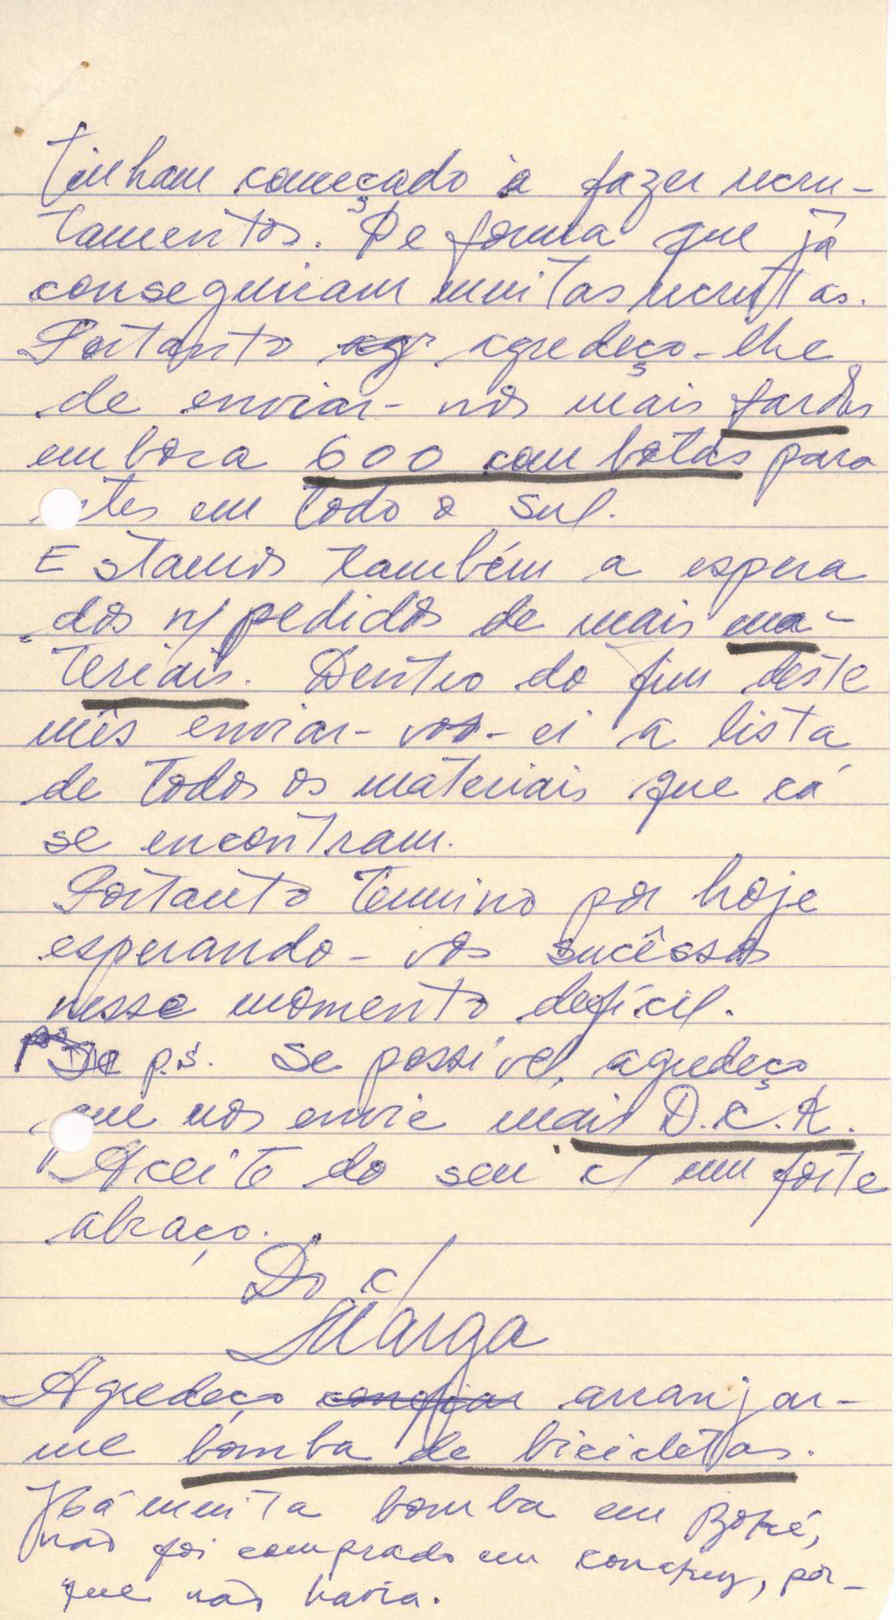 tinham começado a fazer recru-
tamentos. De forma que já
conseguiram muitas recrutas.
Portanto agredeço-lhe
de enviar-nos mais fardas
embora 600 com botas para
tes em todo o Sul.
Estamos também a espera
dos n/ pedidos de mais ma-
teriais. Dentro do fim deste
mês enviar-vos-ei a lista
de todos os materiais que cá
se encontram.
Portanto termino por hoje
esperando-vos sucêssos
nesse momento defícil.
p.s. Se possivel, agredeço
que nos envie mais D.C.K.
Aceite do seu c/ um forte
abraço.
Do c/
Marga
Agredeço arranjar-
me bomba de bicicletas.
Há muita bomba em Boké,
não foi comprado em conakry, por-
que não havia.